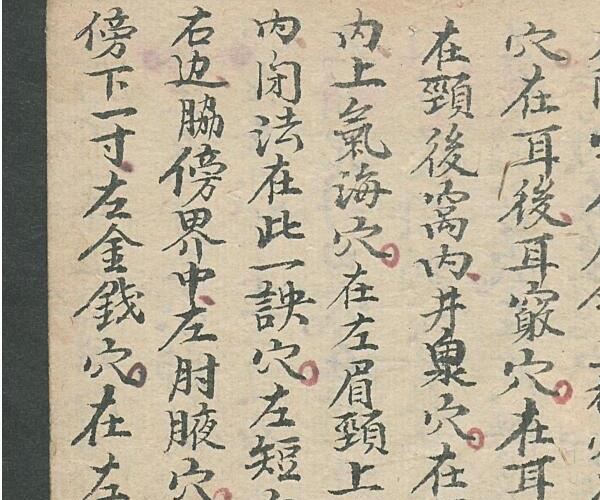 穴在耳後耳竅穴在耳
在頸後窩内井泉穴在
内上氣海穴在左眉頸上
内閉法在此一訣穴左短
右边脇傍界中左肘腋穴
傍下一寸左金錢穴在左